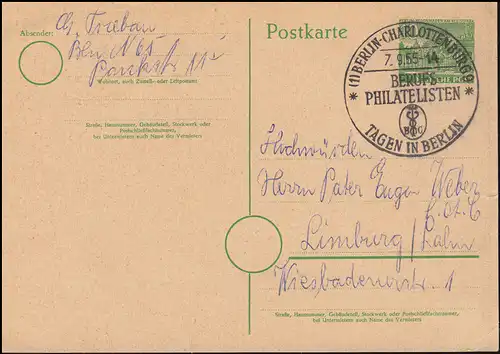 Absender:
Bln N65
Wohnort, auch Zustell- oder Leitpostamt
Straße, Hausnummer, Gebäudeteil, Stockwerk oder
Postschließfachnummer,
bei Untermietern auch Name des Vermieters
Postkarte
(1) BERLIN-CHARLOTTENBURG 9
7.9.55-1A
BERUFS-
PHILATELISTEN
TAGEN IN BERLIN
Hochwürden
Herrn Pater Eugen Weber
Limburg/Lahn
Wiesbadenerstr. 1
Straße, Hausnummer, Gebäudeteil, Stockwerk oder Postschließfachnummer,
bei Untermietern auch Name des Vermieters